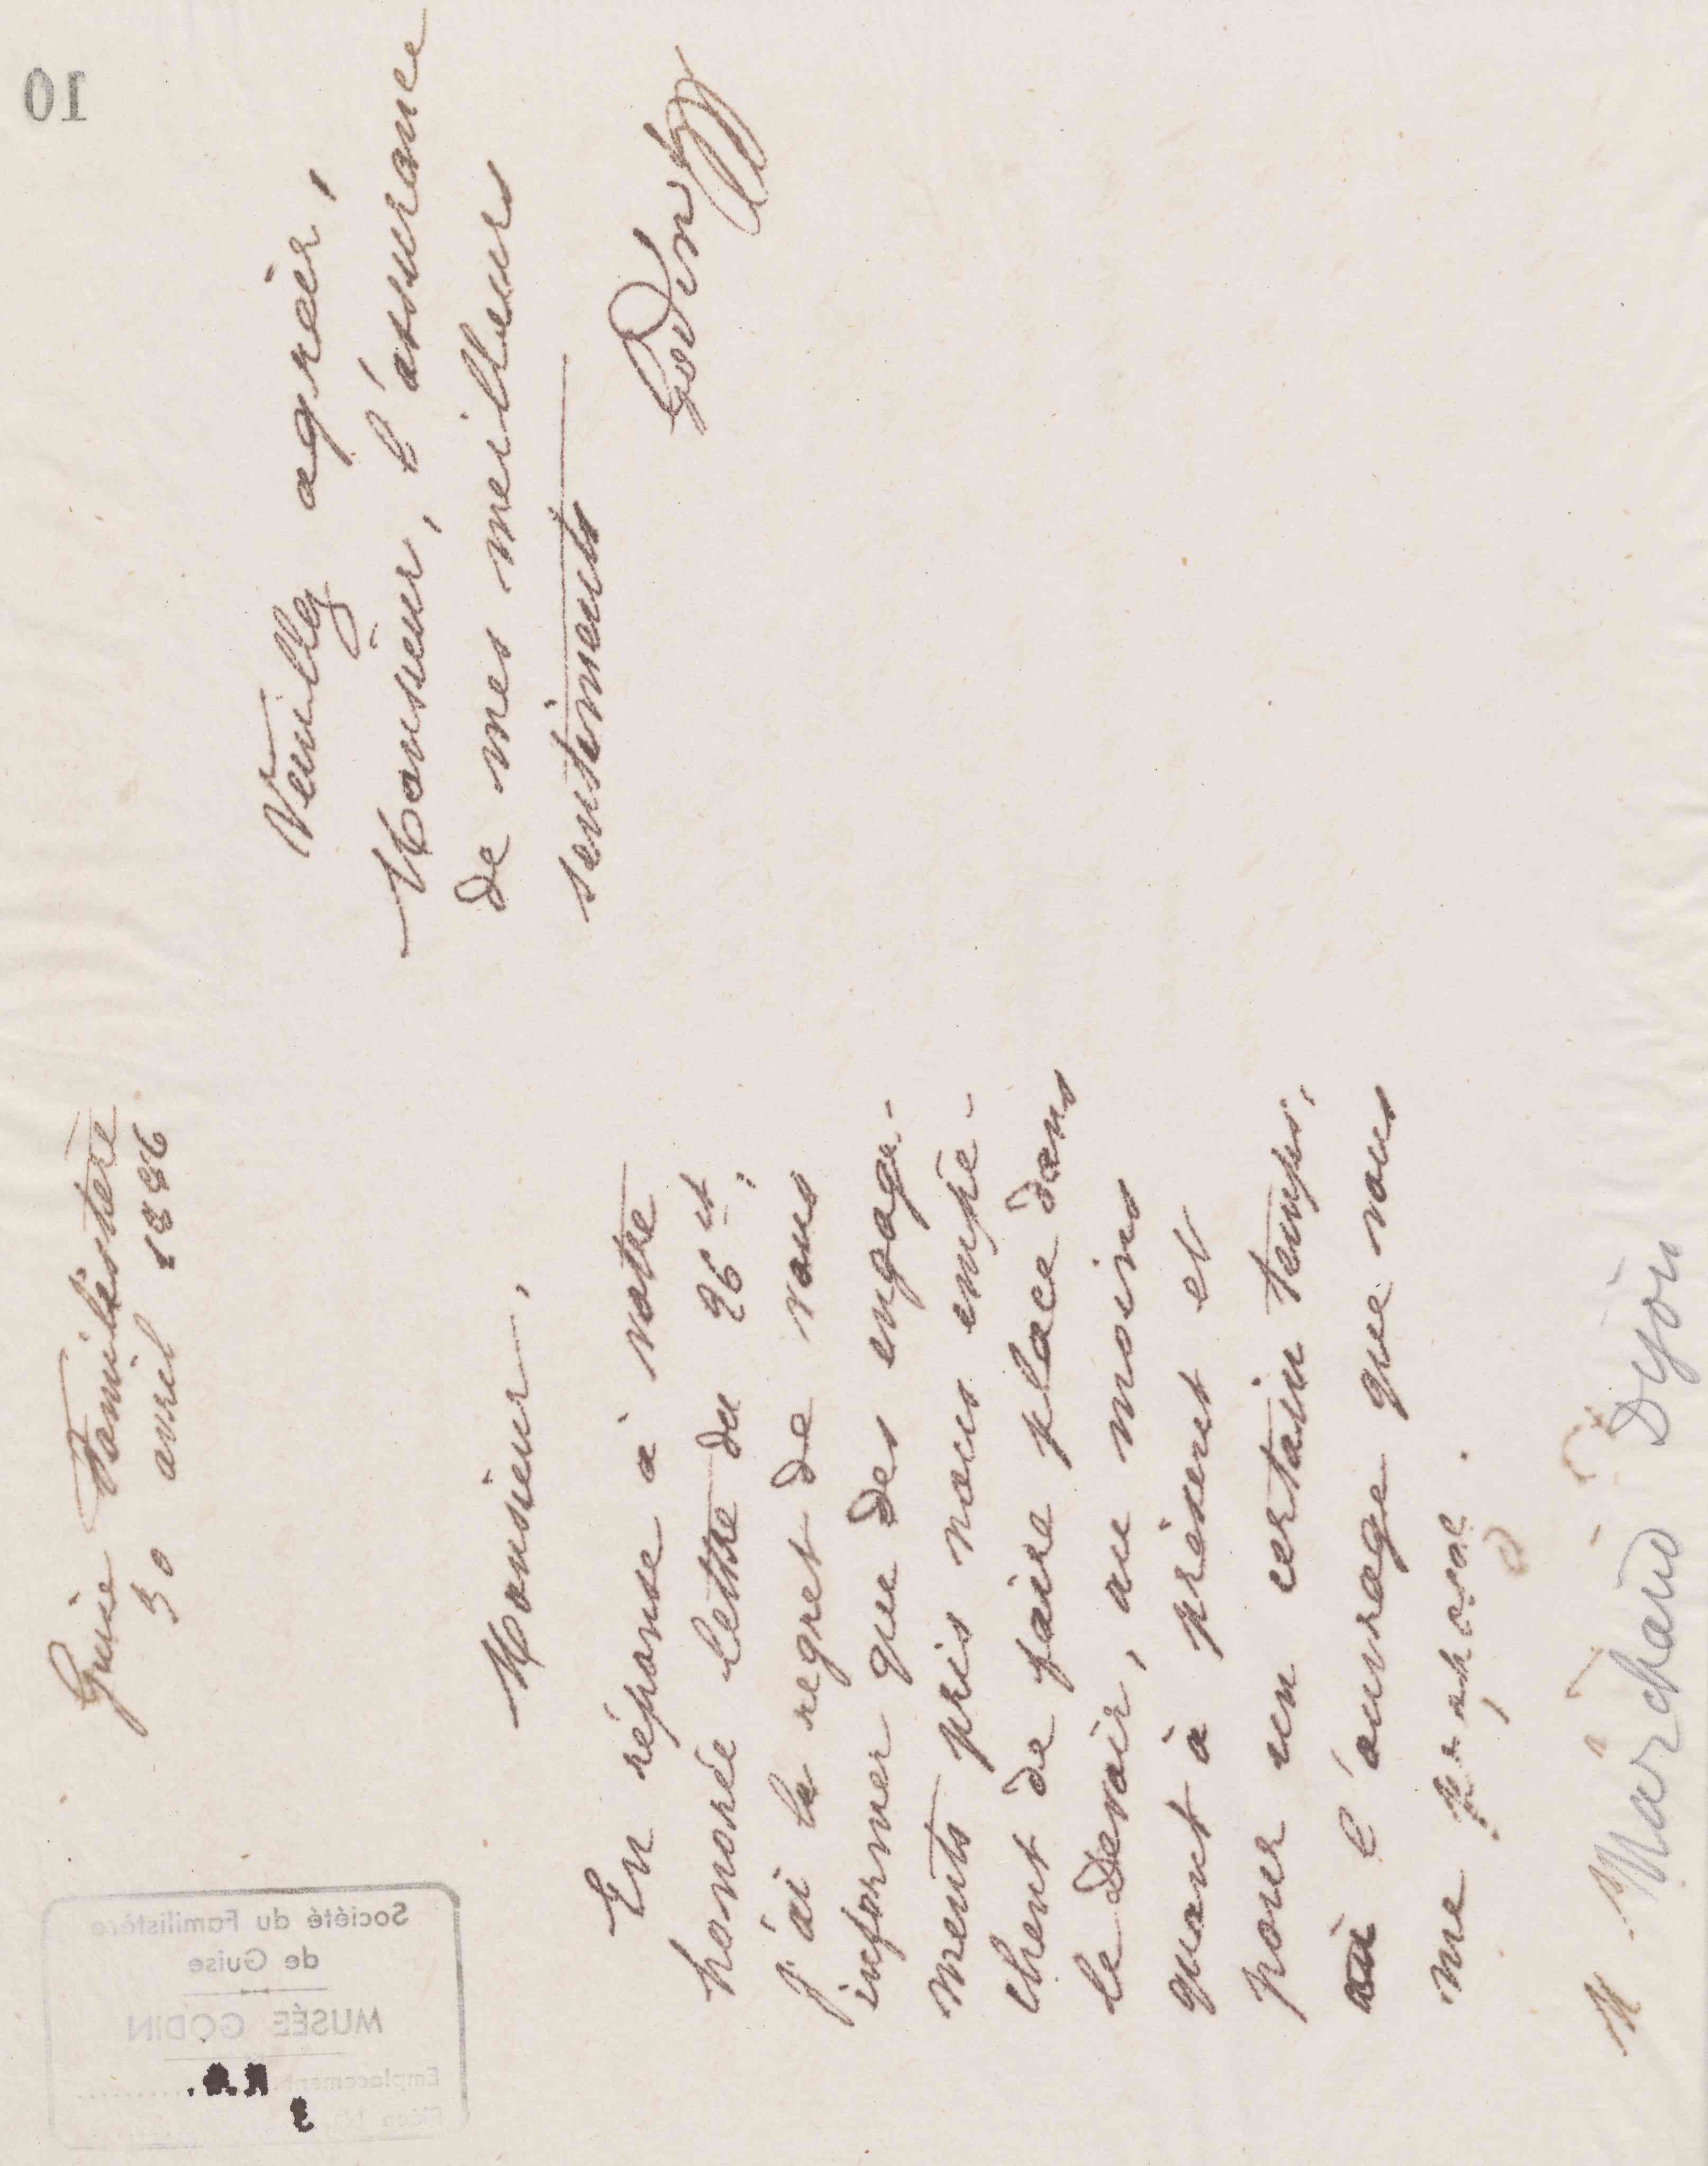 10
Guise Familistère
30 avril 1886
Monsieur,
En réponse à votre
honorée lettre du 26 ct,
j'ai le regret de vous
informer que des engage-
ments pris nous empê-
chent de faire place dans
le Devoir, au moins
quant à présent et
pour un certain temps,
à l'ouvrage que vous
me proposez.
M Marchand Dijon
Veuillez agréer,
Monsieur, l'assurance
de mes meilleurs
sentiments
Godin
Société du Familistère
de Guise
MUSÉE GODIN
Emplacement